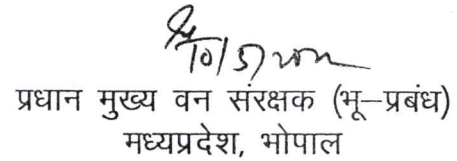 10/5/2012
प्रधान मुख्य वन संरक्षक (भू–प्रबंध)
मध्यप्रदेश, भोपाल